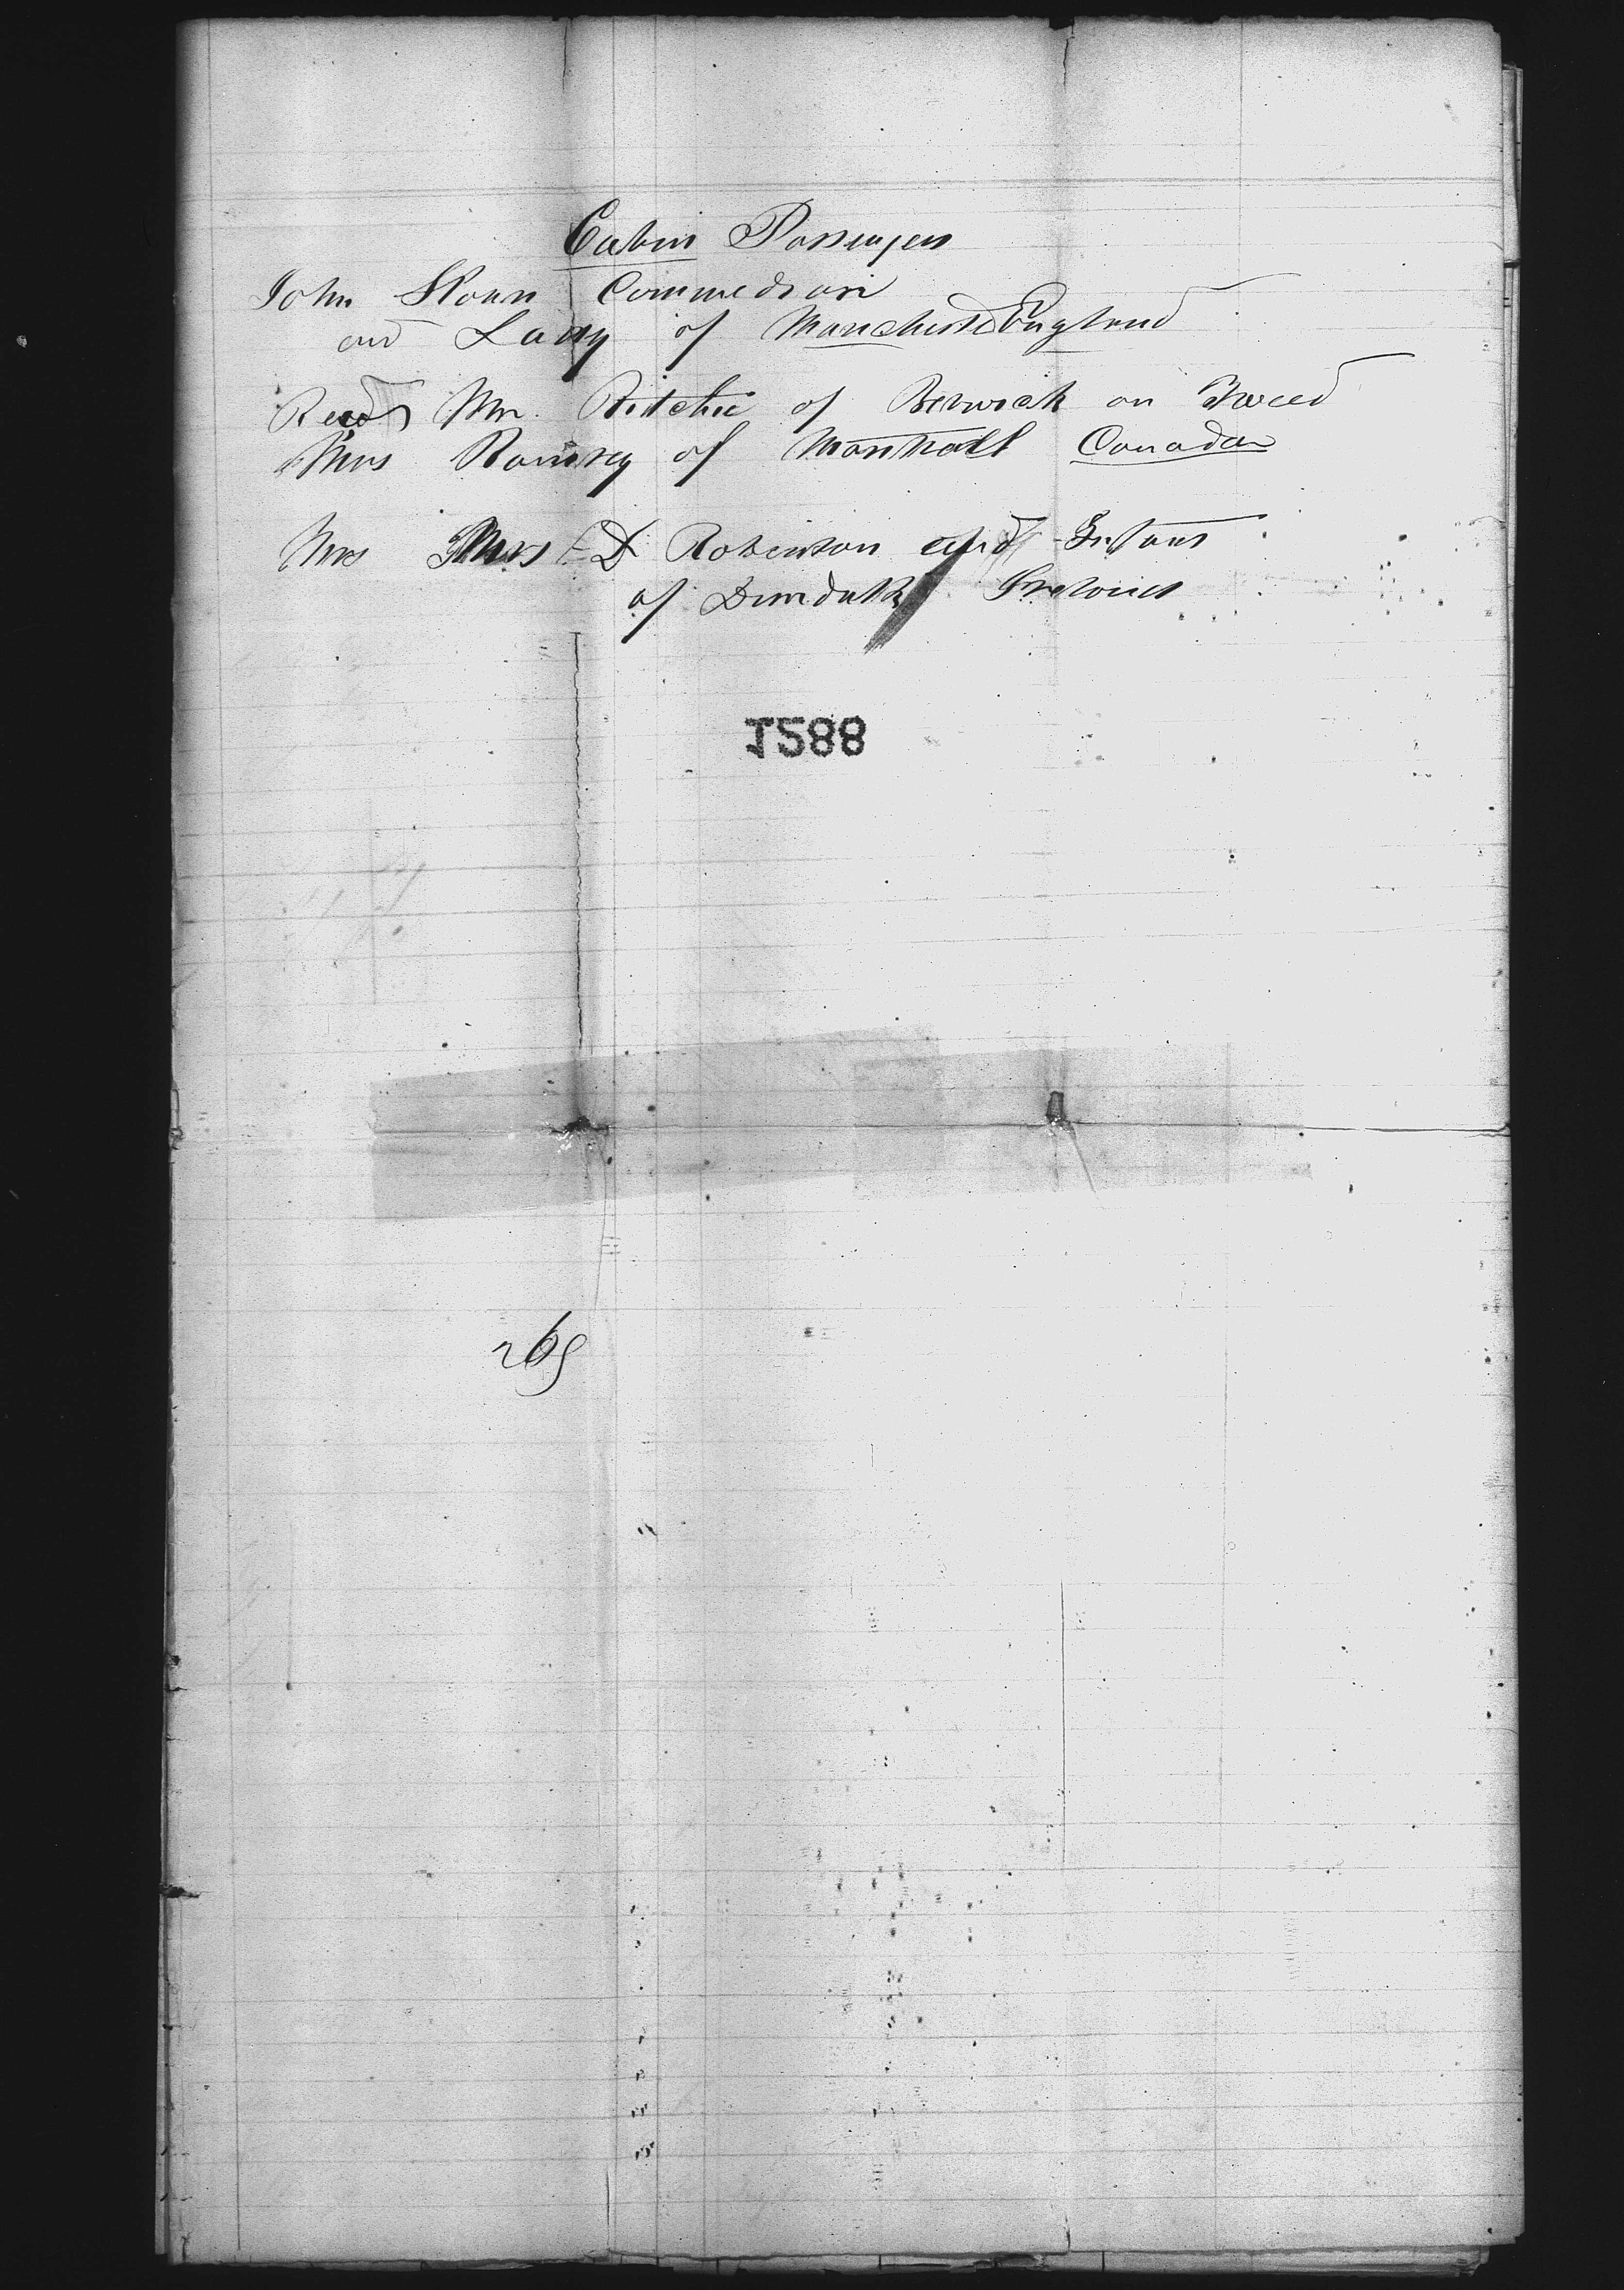 Cabin Passengers
John Sloan Commedian
and Lady of Manchester England
Revd Mr. Ritchie of Berwick on Tweed
Mrs Ramsey of Montreall Canada
Mrs E D Robinson and Infant
of Dundalk Ireland
1288
265